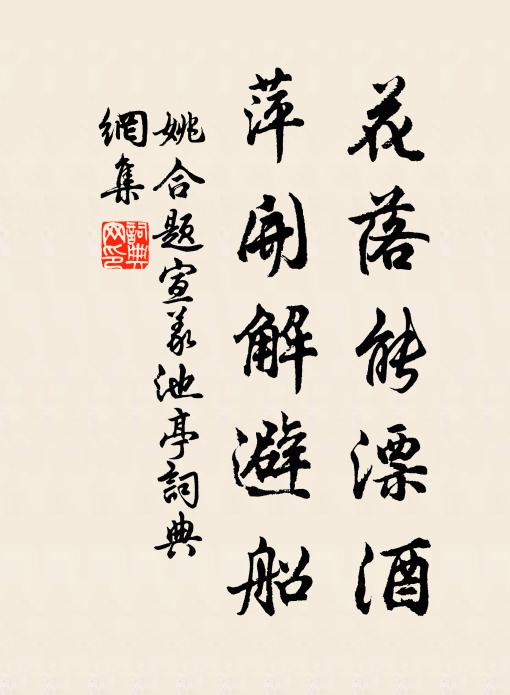 花落能漂酒
萍開解避船
姚合題宣義池亭詞典
網集
詞典
网印